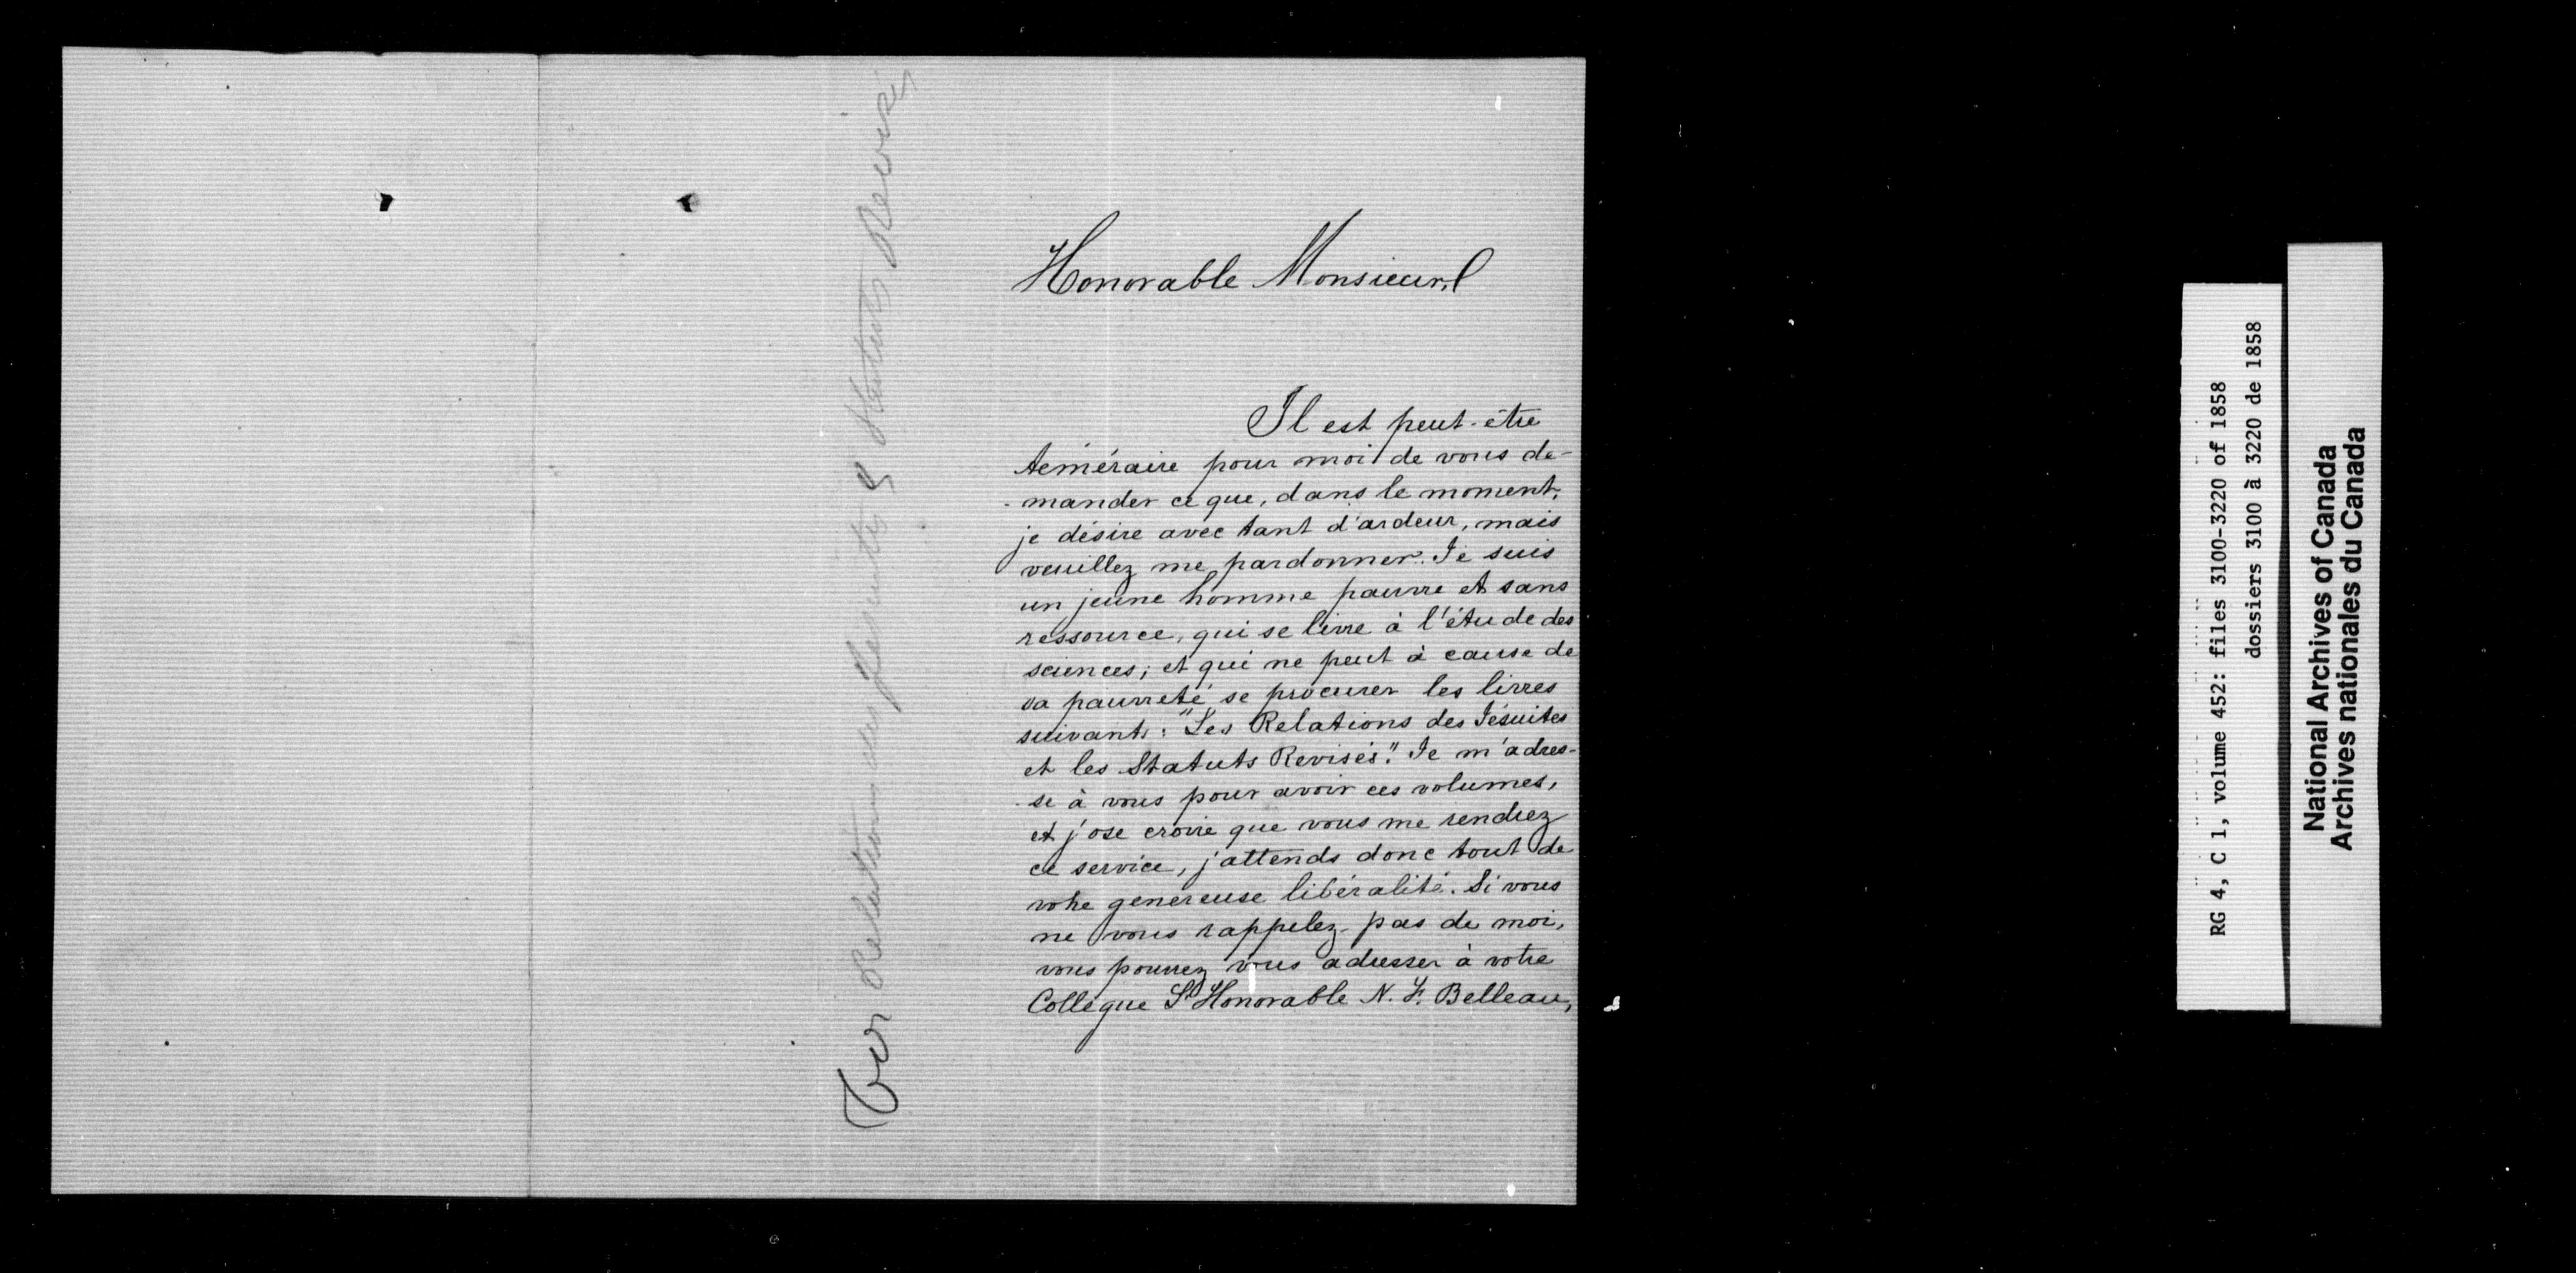 For Relations des Jesuites & Statuts Revisés
Honorable Monsieur,
Il est peut-être
teméraire pour moi de vous de-
-mander ce que, dans le moment,
je désire avec tant d'ardeur, mais
veuillez me pardonner. Je suis
un jeune homme pauvre et sans
ressource, qui se livre à l'étude des
sciences; et qui ne peut à cause de
sa pauvreté, se procurer les livres
suivants: "Les Relations des Jésuites
et les Statuts Revisés". Je m'adres-
-se à vous pour avoir ces volumes,
et j'ose croire que vous me rendrez
ce service, j'attends donc tout de
votre genereuse libéralité. Si vous
ne vous rappelez pas de moi,
vous pourrez vous adresser à votre
Collègue L'Honorable N. F. Belleau,
RG 4, C 1, volume 452: files 3100-3220 of 1858
dossiers 3100 à 3220 de 1858
National Archives of Canada
Archives nationales du Canada